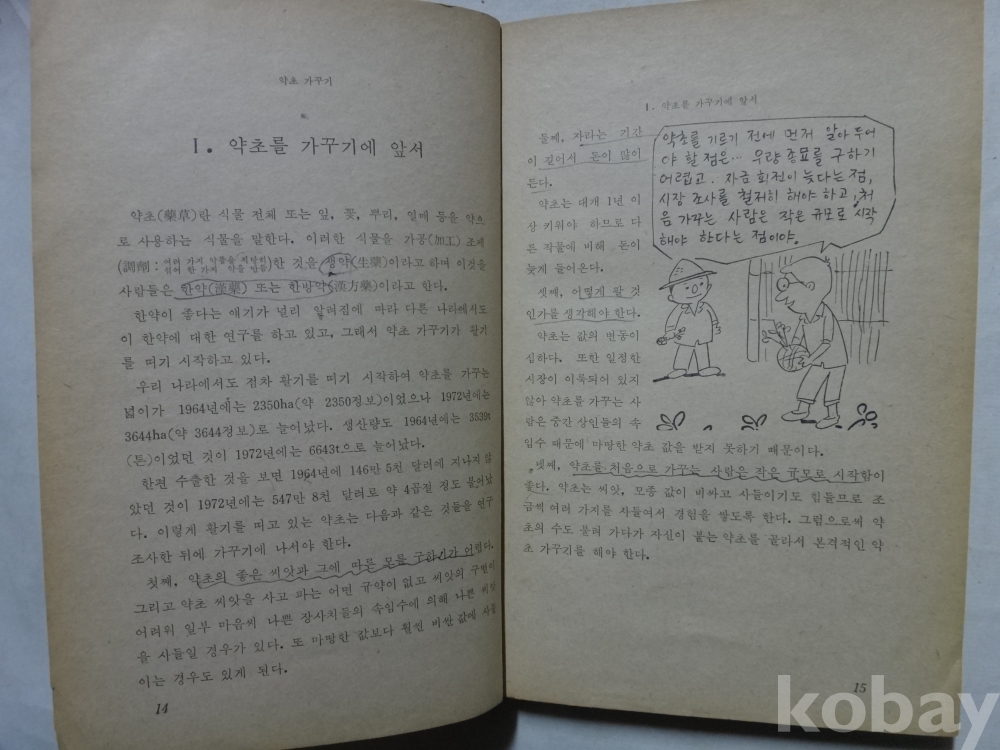 약초 가꾸기
I. 약초를 가꾸기에 앞서
약초(藥草)란 식물 전체 또는 잎, 꽃, 뿌리, 열매 등을 약으
로 사용하는 식물을 말한다. 이러한 식물을 가공(加工) 조제
(調劑: 여러 가지 약품을 적당히 섞어 한 가지 약을 만듦)한 것을 생약(生藥)이라고 하며 이것을
사람들은 한약(漢藥) 또는 한방약(漢方藥)이라고 한다.
한약이 좋다는 얘기가 널리 알려짐에 따라 다른 나라에서도
이 한약에 대한 연구를 하고 있고, 그래서 약초 가꾸기가 활기
를 띠기 시작하고 있다.
우리 나라에서도 점차 활기를 띠기 시작하여 약초를 가꾸는
넓이가 1964년에는 2350ha(약 2350정보)이었으나 1972년에는
3644ha(약 3644정보)로 늘어났다. 생산량도 1964년에는 3539t
(톤)이었던 것이 1972년에는 6643t으로 늘어났다.
한편 수출한 것을 보면 1964년에 146만 5천 달러에 지나지 않
았던 것이 1972년에는 547만 8천 달러로 약 4곱절 정도 불어났
다. 이렇게 활기를 띠고 있는 약초는 다음과 같은 것들을 연구
조사한 뒤에 가꾸기에 나서야 한다.
첫째, 약초의 좋은 씨앗과 그에 따른 모를 구하기가 어렵다.
그리고 약초 씨앗을 사고 파는 어떤 규약이 없고 씨앗의 구별이
어려워 일부 마음씨 나쁜 장사치들의 속임수에 의해 나쁜 씨앗
을 사들일 경우가 있다. 또 마땅한 값보다 훨씬 비싼 값에 사들
이는 경우도 있게 된다.
14
I. 약초를 가꾸기에 앞서
둘째, 자라는 기간
이 길어서 돈이 많이
든다.
약초는 대개 1년 이
상 키워야 하므로 다
른 작물에 비해 돈이
늦게 들어온다.
셋째, 어떻게 팔 것
인가를 생각해야 한다.
약초는 값의 변동이
심하다. 또한 일정한
시장이 이룩되어 있지
않아 약초를 가꾸는 사
람은 중간 상인들의 속
임수 때문에 마땅한 약초 값을 받지 못하기 때문이다.
넷째, 약초를 처음으로 가꾸는 사람은 작은 규모로 시작함이
좋다. 약초는 씨앗, 모종 값이 비싸고 사들이기도 힘들므로 조
금씩 여러 가지를 사들여서 경험을 쌓도록 한다. 그럼으로써 약
초의 수도 불려 가다가 자신이 붙는 약초를 골라서 본격적인 약
초 가꾸기를 해야 한다.
약초를 기르기 전에 먼저 알아 두어
야 할 점은… 우량 종묘를 구하기
어렵고. 자금 회전이 늦다는 점,
시장 조사를 철저히 해야 하고, 처
음 가꾸는 사람은 작은 규모로 시작
해야 한다는 점이야.
15
kobay